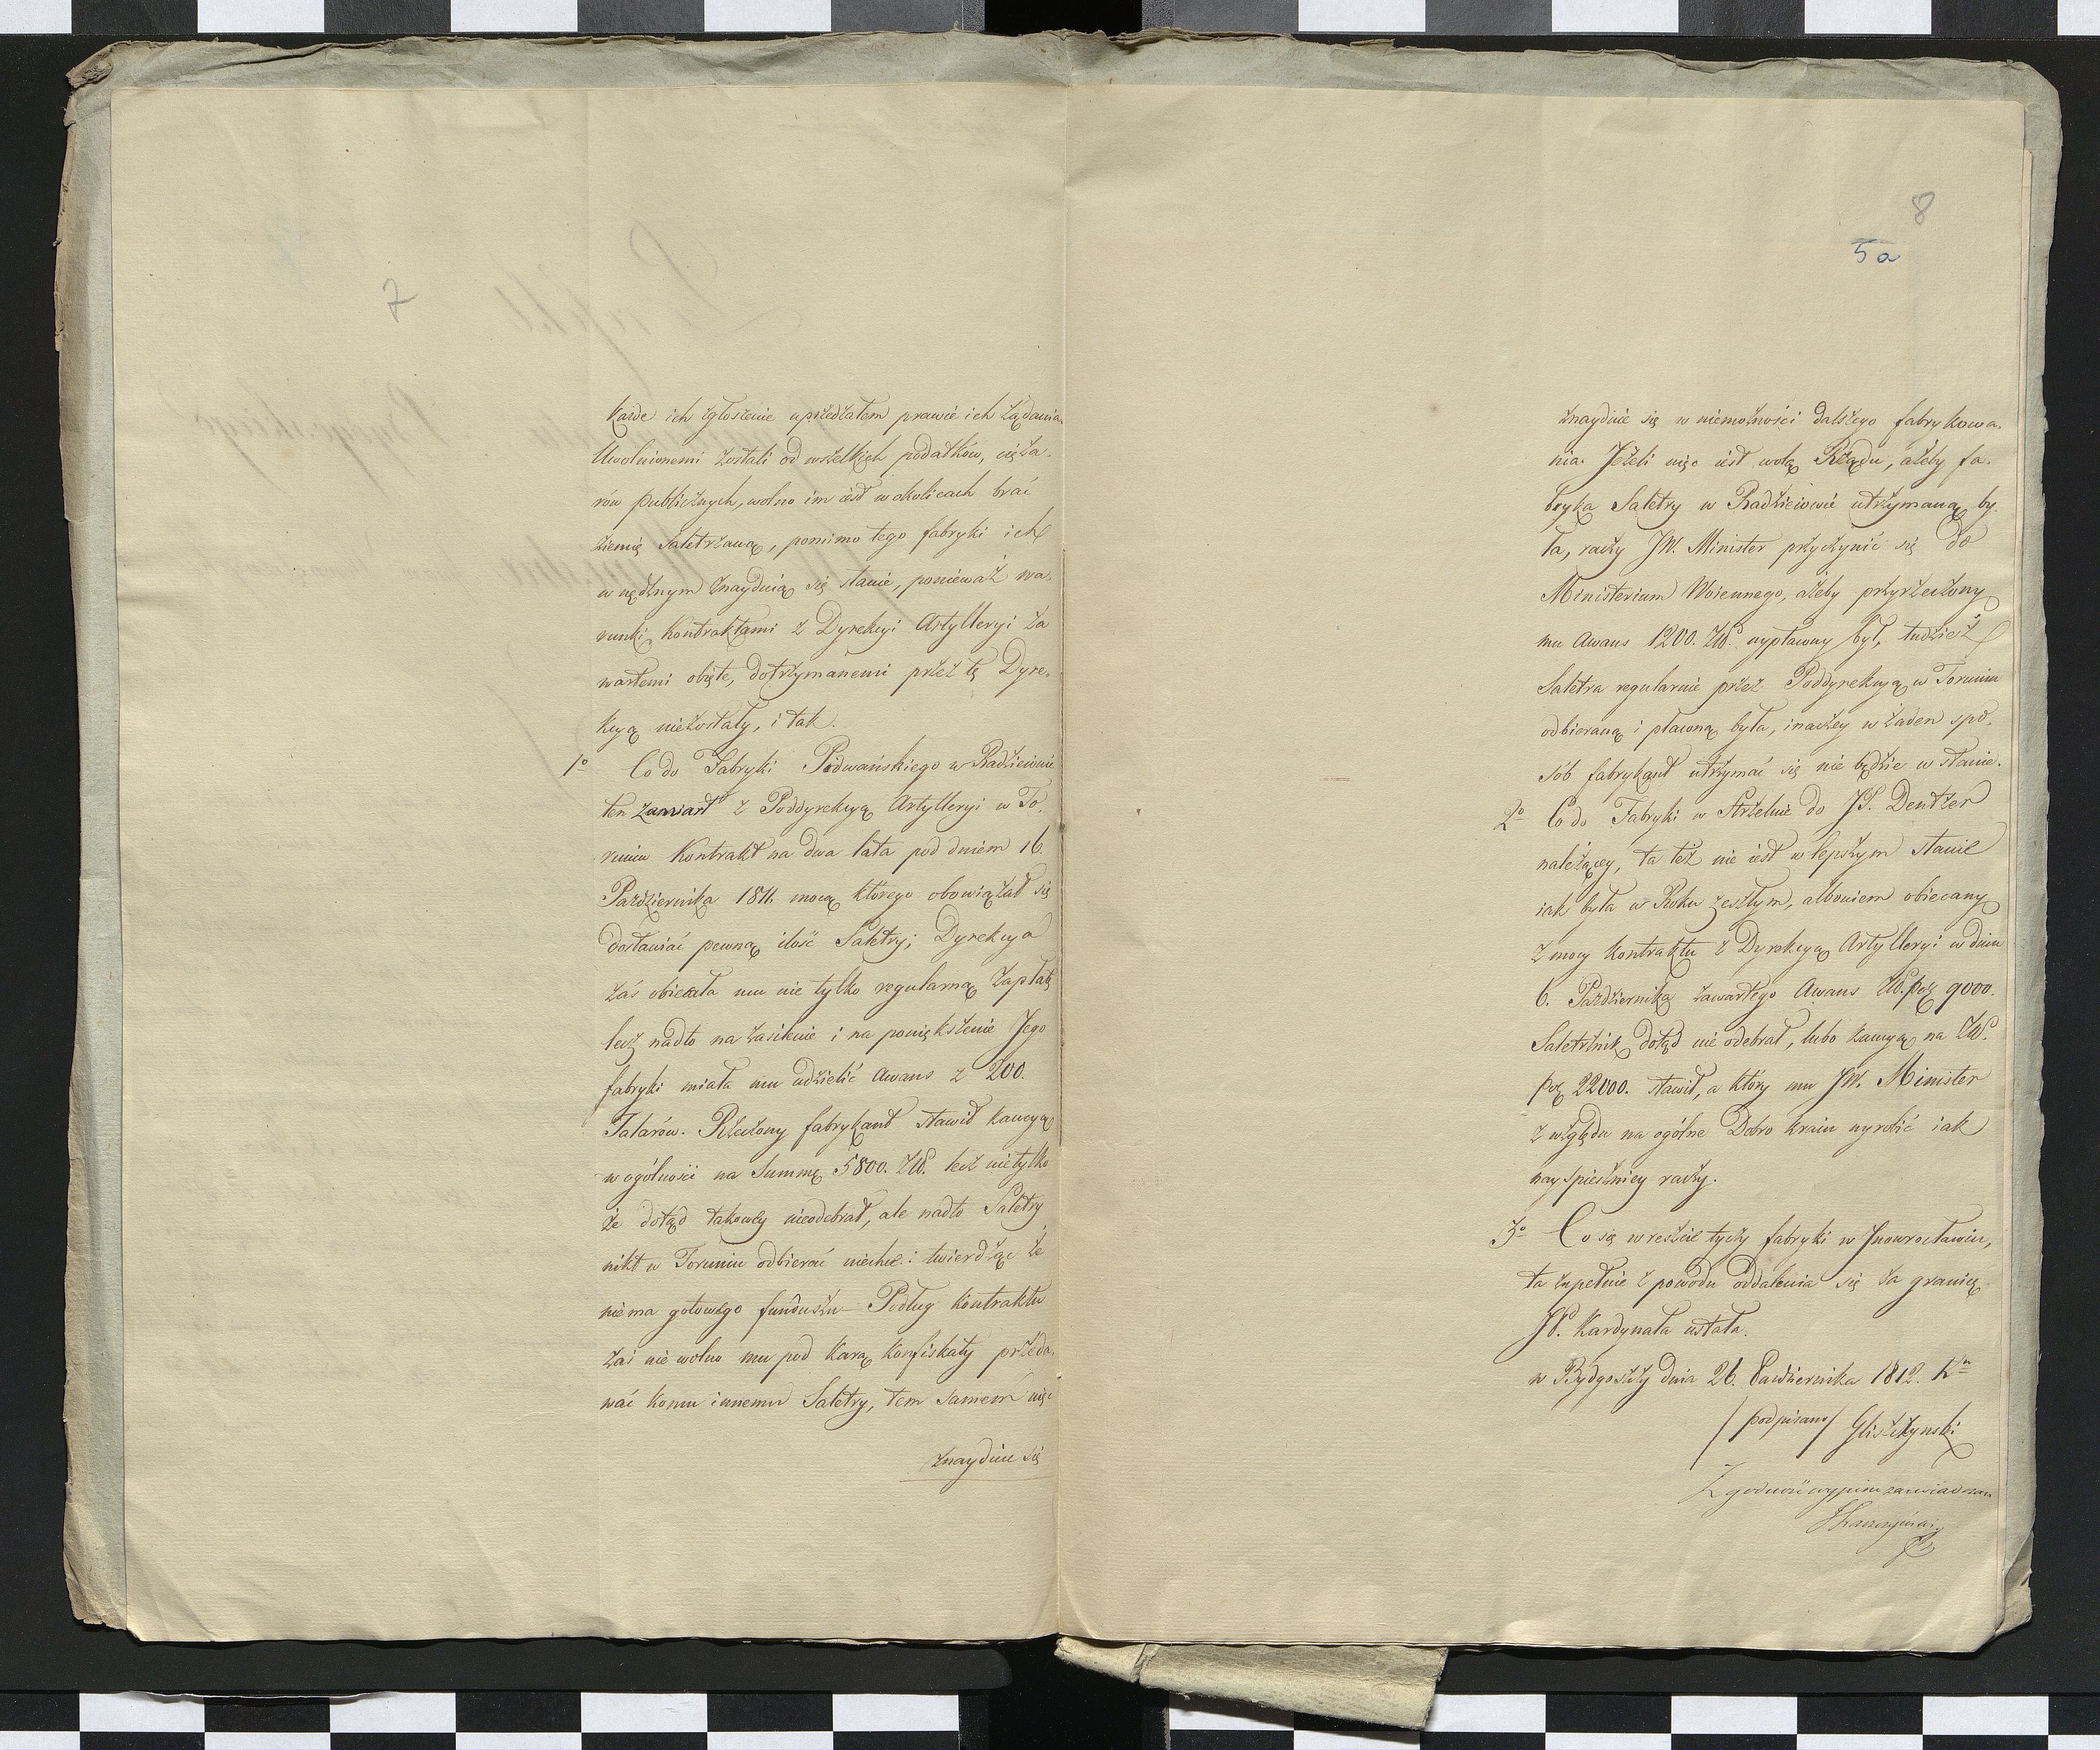 7
każde ich zgłoszenie uprzedzałem prawie ich żądania
Uwolnionemi zostali od wszelkich podatków, cięża-
rów publicznych, wolno im iest w okolicach brać
ziemię Saletrzaną, pomimo tego fabryki ich
w nędznym znayduią się stanie, ponieważ wa-
runki kontraktami z Dyrekcyi Artylleryi za
wartemi obięte, dotrzymanemi przez tę Dyre-
kcyą niezostały, i tak.
1o Co do Fabryki Podwańskiego w Radzieiowie
ten zawarł z Poddyrekcyą Artylleryi w To-
runiu Kontrakt na dwa lata pod dniem 16.
Października 1811. mocą którego obowiązał się
dostawiać pewną ilość Saletry; Dyrekcya
zaś obiecała mu nie tylko regularną zapłatę
lecz nadto na zasilenie i na powiększenie Jego
fabryki miała mu udzielić Awans z 200.
Talarów. Rzeczony fabrykant stawił kaucyą
w ogólności na Summę 5800. Złł. lecz nie tylko
że dotąd takowey nieodebrał, ale nadto Saletry
nikt w Toruniu odbierać niechce: twierdząc że
niema gotowego funduszu — Podług Kontraktu
zaś nie wolno mu pod karą konfiskaty przeda-
wać komu innemu Saletry, tem samem więc
znayduie się
8
5a
znayduie się w niemożności dalszego fabrykowa-
nia. Jeżeli więc iest wolą Rządu, ażeby fa-
bryka Saletry w Radzieiowie utrzymaną by-
ła, raczy JW. Minister przyczynić się do
Ministerium Woiennego, ażeby przyrzeczony
mu Awans 1200. Złł. wypłacony był, tudzież
Saletra regularnie przez Poddyrekcyą w Toruniu
odbieraną i płaconą była, inaczey w żaden spo-
sób fabrykant utrzymać się nie będzie w stanie.
2o Co do Fabryki w Strzelnie do JP. Dentzer
należącey, ta też nie iest w lepszym stanie
iak była w Roku zeszłym, albowiem obiecany
z mocy kontraktu z Dyrekcyą Artylleryi w dniu
6. Października zawartego Awans Złł. pol 9000.
Saletrznik dotąd nie odebrał, lubo kaucyą na Złł.
pol 22000. stawił, a który mu JW. Minister
z względu na ogólne Dobro kraiu wyrobić iak
nayspieszniey raczy.
3o Co się wreszcie tyczy fabryki w Jnowrocławiu,
ta zupełnie z powodu oddalenia się za granicę
JP. Kardynała ustała.
w Bydgoszczy dnia 26. Października 1812. Ru
/podpisano/ Gliszczynski
Zgodność wypisu zaświadczam